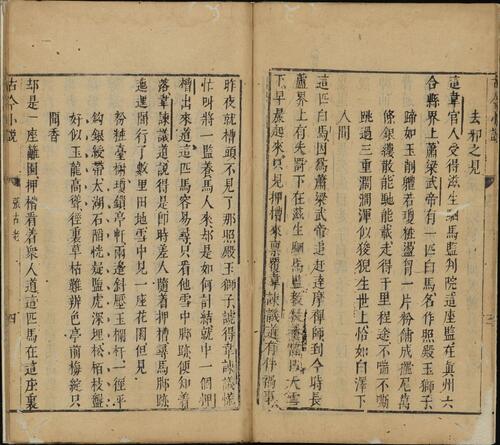 去邪之見
這韋官人受得滋生駟馬監判院這座監在真州六
合縣界上蕭梁武帝有一匹白馬名作照殿玉獅子
蹄如玉削體若瓊粧盪胷一片粉鋪成擺尾萬
條銀縷散能馳能載走得千里程途不喘不嘶
跳過三重闊澗渾似狻猊生世上恰如白澤下
人間
這匹白馬因為蕭梁武帝追赶達摩禪師到今時長
蘆界上有失罰下在滋生駟馬監教牧養大雪
下早晨起來只見押槽來稟覆韋諫議道有件禍事
昨夜就槽頭不見了那照殿玉獅子諕得韋諫議慌
忙叫將一監養馬人來却是如何計結就中一個押
槽出來道這匹馬容易尋只看他雪中脚跡便知着
落韋諫議道說得是即時差人隨着押槽尋馬脚跡
迤邐間行了數里田地雪中見一座花園但見
粉粧臺榭瓊鎖亭軒兩邊斜壓玉欄杆一徑平
鈎銀綬帶太湖石陷恍疑鹽虎深埋松栢枝盤
好似玉龍高聳徑裏草枯難辨色亭前梅綻只
聞香
却是一座籬園押槽看着衆人道這匹馬在這座裏
古今小說
張古老
四